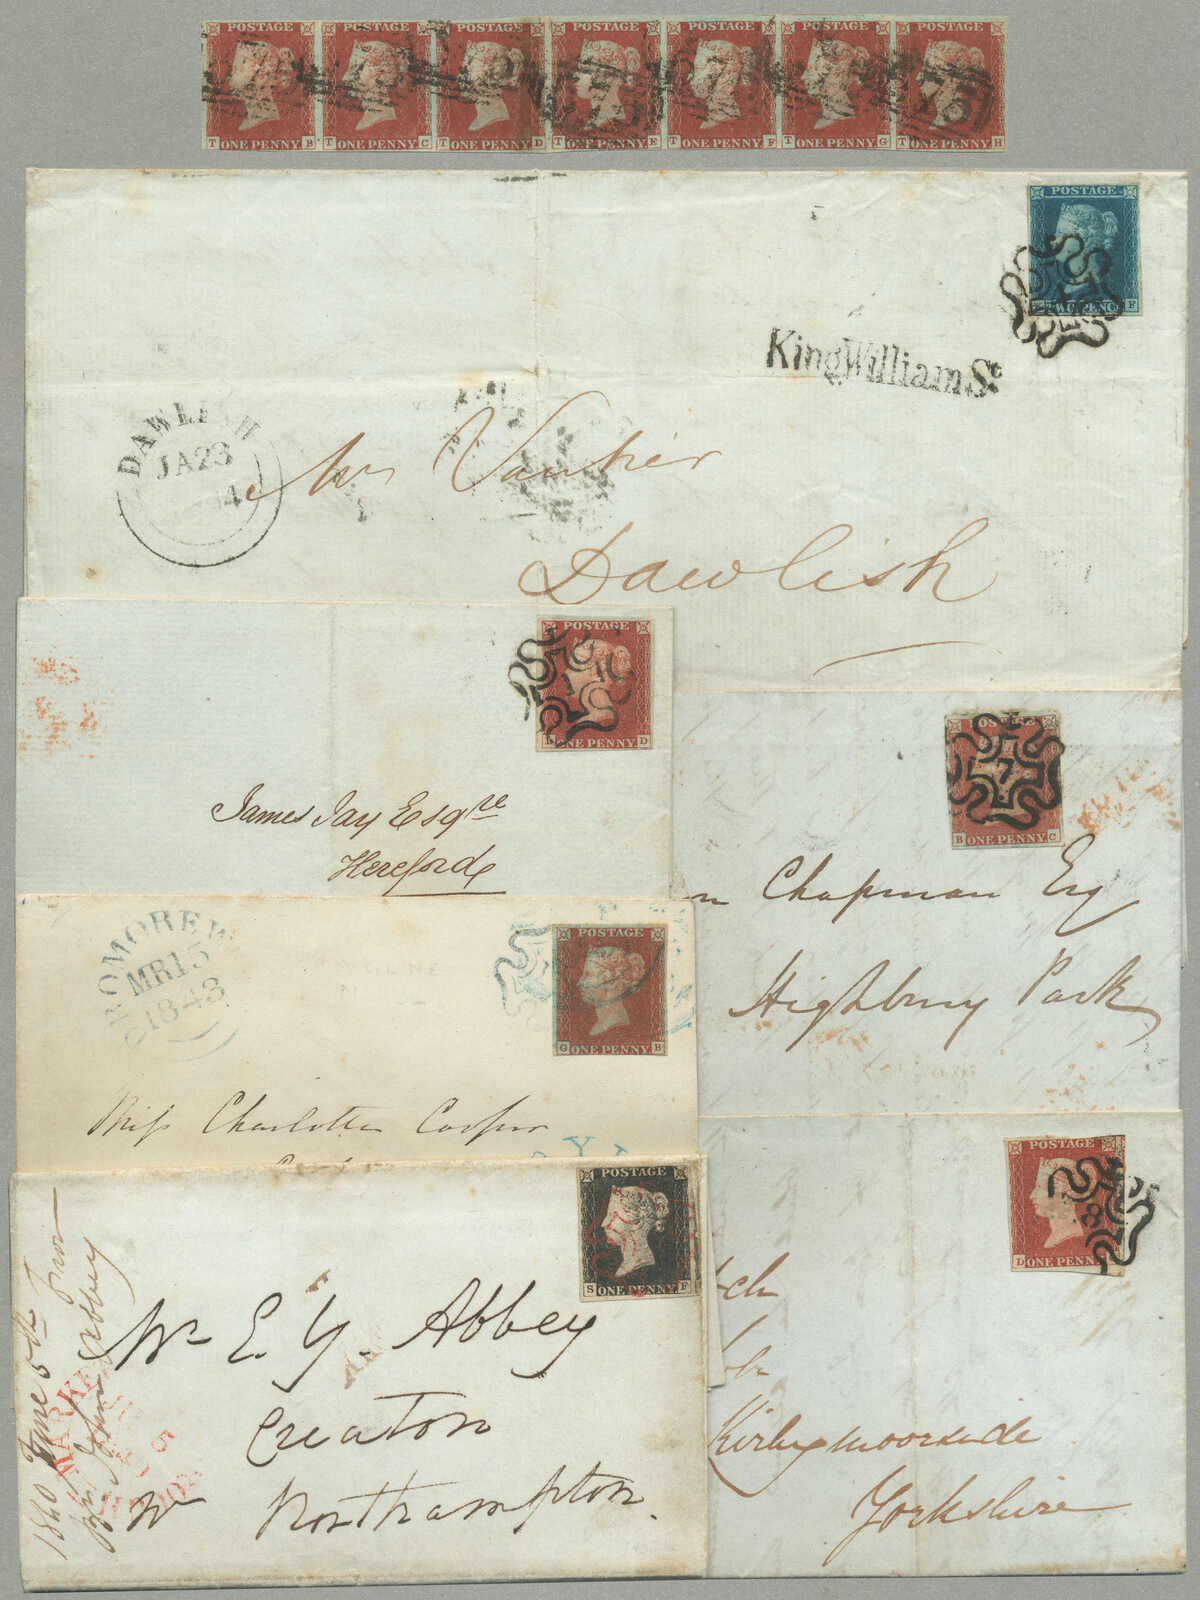 POSTAGE POSTAGE POSTAGE POSTAGE POSTAGE POSTAGE POSTAGE
T ONE PENNY B T ONE PENNY C T ONE PENNY D T ONE PENNY E T ONE PENNY F T ONE PENNY G T ONE PENNY H
POSTAGE
TWO PENCE F
King William St
DAWLISH
JA 23
Dawlish
POSTAGE
ONE PENNY D
James Jay Esqre
Hereford
POSTAGE
7
B ONE PENNY C
Chapman Esq
Highbury Park
DROMORE
MR 15
1843
POSTAGE
G ONE PENNY B
Miss Charlotte Cooper
POSTAGE
S ONE PENNY F
1840 June 5th from
Mr John Abbey
Mr E. Y. Abbey
Creaton
Nr Northampton.
8
D ONE PENNY
Kirbymoorside
Yorkshire